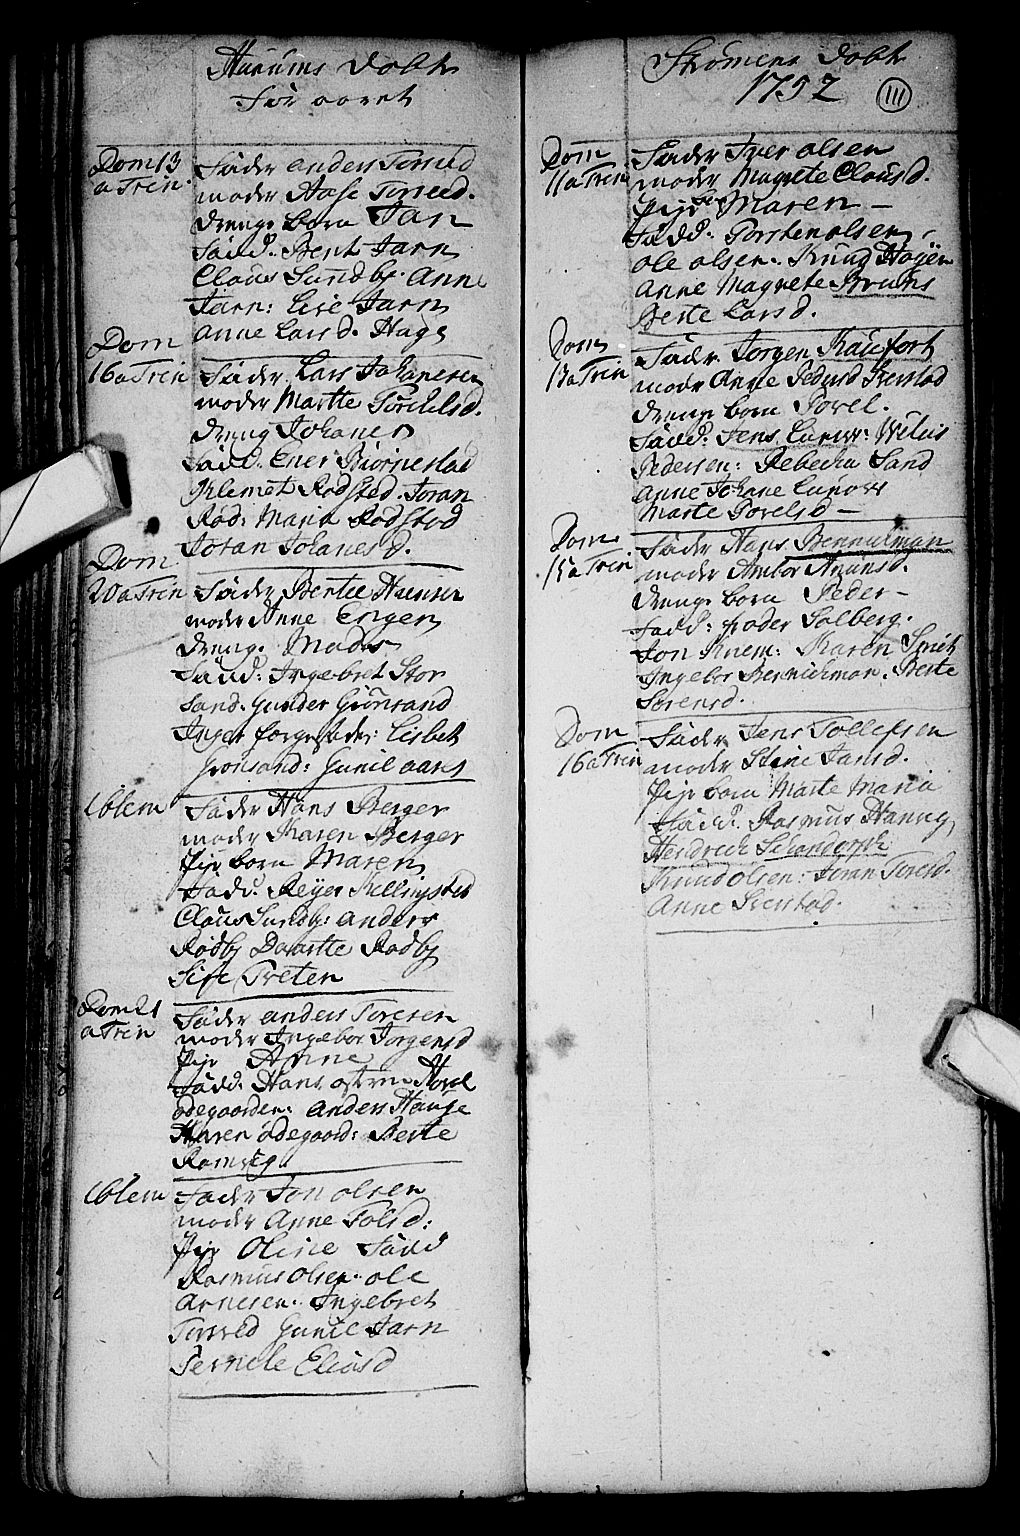 Hurums Døbte
for aaret
Dom 13
a Trin.
Fader anders Torsted
moder Aase Torsted.
drenge barn Jan
Fadd. Bent Jarn
Claus Sundby. Anne
Jarn: Lise Jarn
Anne Larsd. Hage
Dom
16 a Trin
Fader Lars Johanesen
moder Martte Torchelsd.
dreng Johanes
Fadd. Ener Biørnestad
Klemet Rødsted. Joran
Rød: Maria Rødstod
Joran Johanesd.
Dom
20 a Trin
Fader Bertel Hansen
moder Anne Engen
dreng. Mads
Fadd: Ingebret Stor
sand. Gunder Grønsand
Inger: Lisbet
Gronsand: Gunil aares
Eblem
Fader Hans Berger
moder Karen Berger
Pige barn Maren
Fadd. Reyer Kellingstad
Claus Sundby: anders
Rødby Daartte Rødby
Sise Treten
Dom 21
a Trin
Fader anders Toresen
moder Ingebor Jorgensd
Pige Anne
Fadd: Hans østen Høvel
ødegaarden: anders Hauge
Maren ødegaard: Berte
Ramvig.
Eblem
Fader Jon olsen
moder Anne Tolsd:
Pige Oline Fadd
Rasmus olsen: ole
Arnesen. Ingebret
Torsted Gunil Jarn
Pernele Eliasd
Strømens Døbte
1752
111
Dom
11 a Trin
Fader Iver olsen
moder Magrete Clausd.
Pige Maren –
Fadd. Torsten olsen,
ole olsen. Knud Højen
Anne Magrete Bruuns
Berte Larsd.
Dom
13 a Trin
Fader Jørgen Kaafort
moder Anne Pedersd Sverstad
drenge barn Povel.
Fadd: Jens Lunow: Nilss
Pedersen: Rebecka Sand
Anne Johane Lunow
Marte Povelsd –
Dom
15 a Trin
Fader Hans Bennichman
moder Ambor Amunsd.
drenge barn Peder –
Fadd: Peder Solberg.
Jon Knem: Karen Smit
Ingebor Bennichman. Berte
Sørensd.
Dom
16 a Trin
Fader Jens Tollefsen
moder Stine Jansd.
Pige barn Marte Maria
Fadd. Rasmus Hannig
Hendrich Schandorph
Knud olsen: Toresd.
Anne Sverstad.